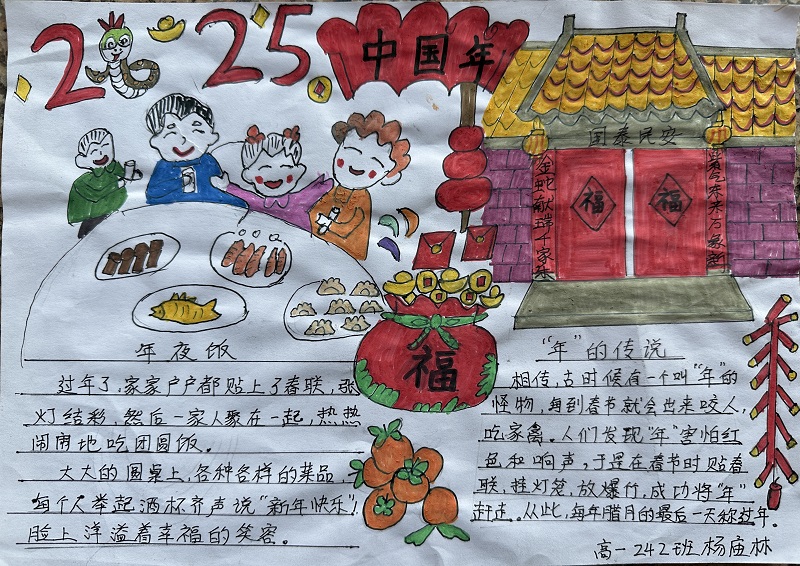 2025
中国年
国泰民安
金蛇献瑞千家乐
紫气东来万象新
福
福
福
年夜饭
过年了,家家户户都贴上了春联,张
灯结彩,然后一家人聚在一起,热热
闹闹地吃团圆饭。
大大的圆桌上,各种各样的菜品,
每个人举起酒杯齐声说“新年快乐”,
脸上洋溢着幸福的笑容。
“年”的传说
相传,古时候有一个叫“年”的
怪物,每到春节就会出来咬人,
吃家禽。人们发现“年”害怕红
色和响声,于是在春节时贴春
联,挂灯笼,放爆竹,成功将“年”
赶走。从此,每年腊月的最后一天称过年。
高一242班杨庙林